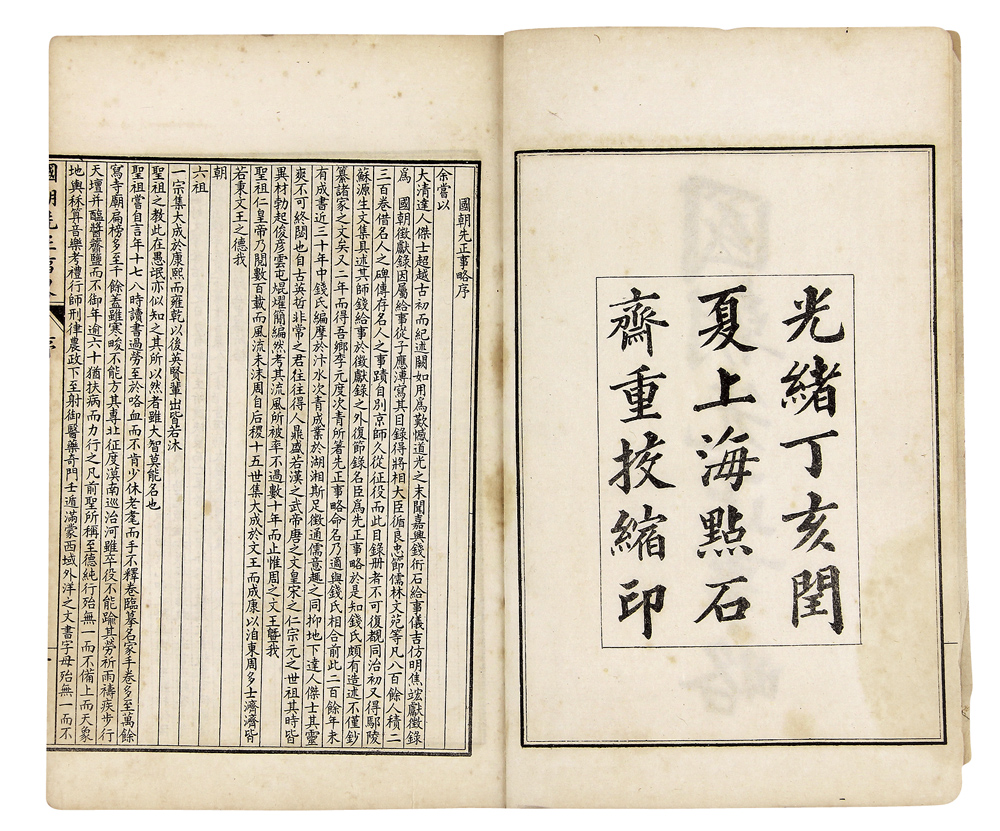 光緒丁亥閏
夏上海點石
齋重挍縮印
國朝先正事略序
余嘗以
大清達人傑士超越古初而紀述闕如用爲歎憾道光之末聞嘉興錢衎石給事儀吉仿明焦竑獻徵錄
爲 國朝徵獻錄因屬給事從子應溥寫其目錄得將相大臣循良忠節儒林文苑等凡八百餘人積二
三百卷借名人之碑傳存名人之事蹟自別京師久從征役而此目錄册者不可復覩同治初又得鄢陵
蘇源生文集具述其師錢給事於徵獻錄之外復節錄名臣爲先正事略於是知錢氏頗有造述不僅鈔
纂諸家之文矣又二年而得吾鄉李元度次青所著先正事略命名乃適與錢氏相合前此二百餘年未
有成書近三十年中錢氏編摩於汴水次青成業於湖湘斯足徵通儒意趣之同抑地下達人傑士其靈
爽不可終閟也自古英哲非常之君往往得人鼎盛若漢之武帝唐之文皇宋之仁宗元之世祖其時皆
異材勃起俊彥雲屯焜燿簡編然考其流風所被率不過數十年而止惟周之文王曁我
聖祖仁皇帝乃閱數百載而風流未沫周自后稷十五世集大成於文王而成康以洎東周多士濟濟皆
若秉文王之德我
朝
六祖
一宗集大成於康熙而雍乾以後英賢輩出皆若沐
聖祖之教此在愚氓亦似知之其所以然者雖大智莫能名也
聖祖嘗自言年十七八時讀書過勞至於咯血而不肯少休老耄而手不釋卷臨摹名家手卷多至萬餘
寫寺廟扁榜多至千餘蓋雖寒畯不能方其專北征度漠南巡治河雖卒役不能踰其勞祈雨禱疾步行
天壇并醢醬虀鹽而不御年逾六十猶扶病而力行之凡前聖所稱至德純行殆無一而不備上而天象
地輿秝算音樂考禮行師刑律農政下至射御醫藥奇門士遁滿蒙西域外洋之文書字母殆無一而不